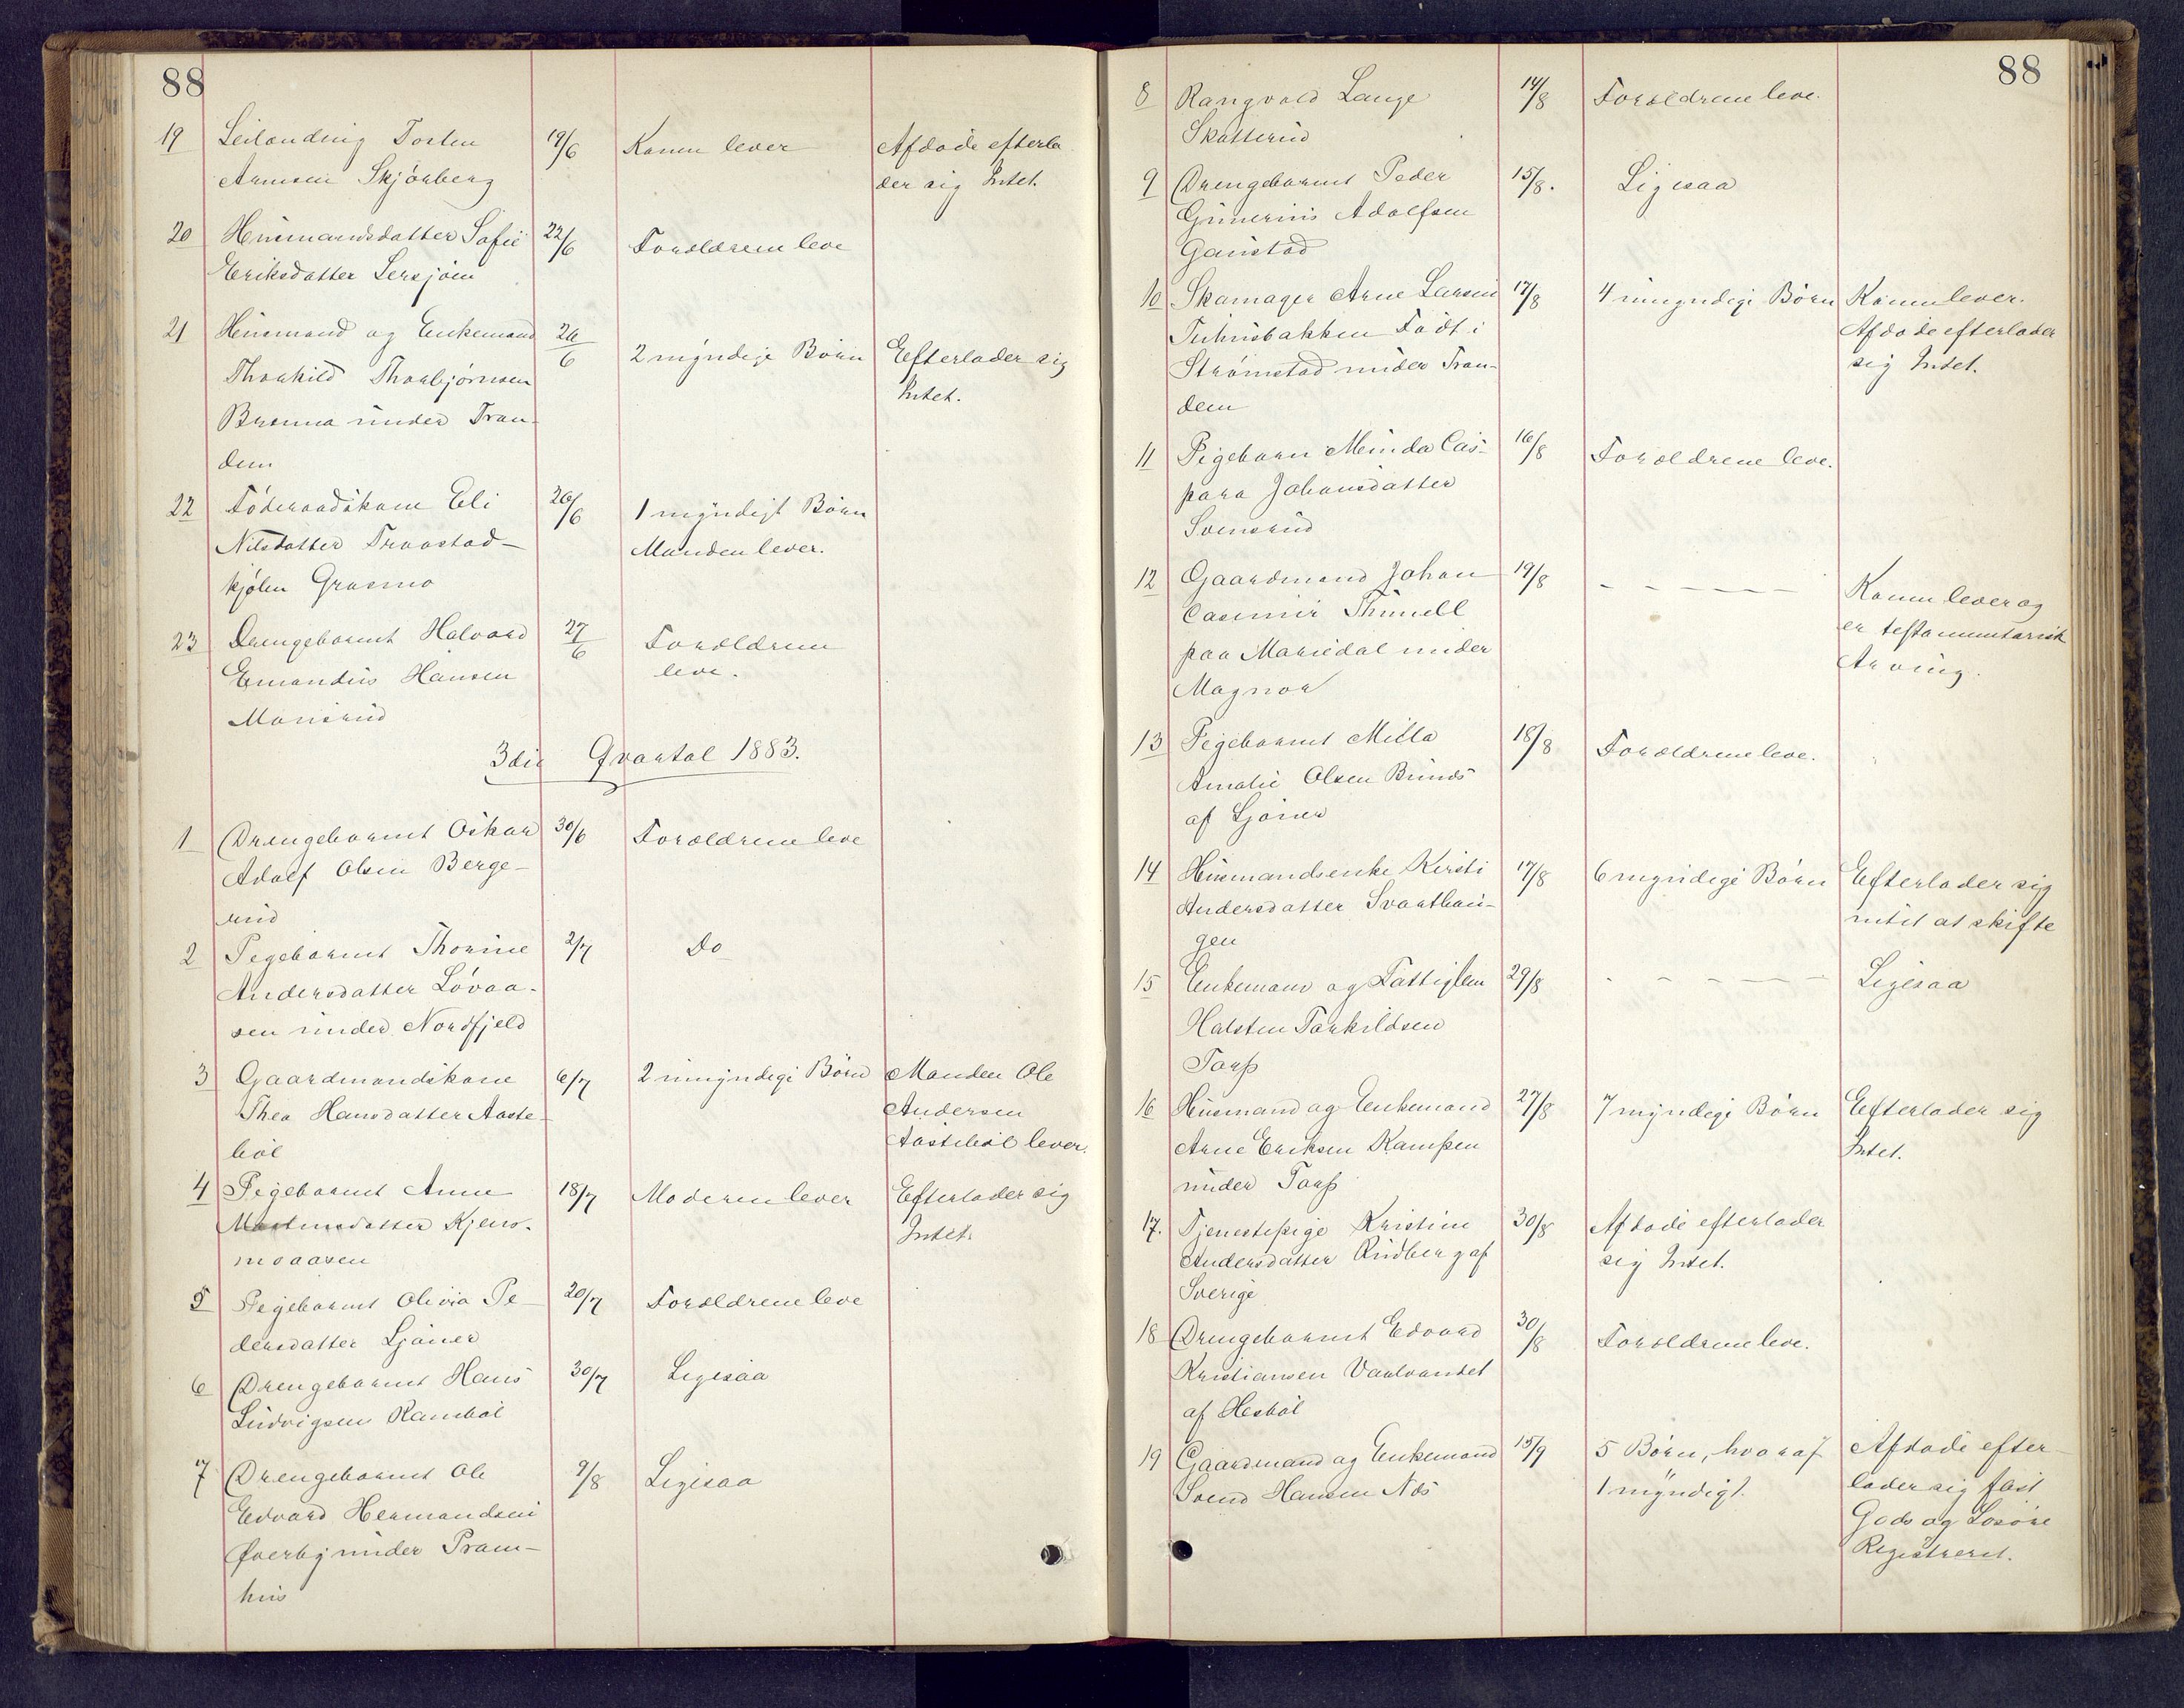 88
19 Leilænding Torsten 19/6 Konen lever Afdøde efterla
Arnesen Skjørberg der sig Intet.
20 Husmandsdatter Sofie 22/6 Forældrene leve
Eriksdatter Lersjøen
21 Husmand og Enkemand 26/6 2 myndige Børn Efterlader sig
Thorkild Thorbjørnsen Intet.
Brenna under Tran-
dem
22 Føderaadskone Eli 26/6 1 myndigt Børn
Nilsdatter Traastad- Manden lever.
kjølen Grasmo
23 Drengebarnet Halvard 27/6 Forældrene
Emandius Hansen leve.
Monsrud
3die Qvartal 1883.
1 Drengebarnet Oskar 30/6 Forældrene leve
Adolf Olsen Berge-
rud
2 Pigebarnet Thorine 2/7 Do
Andersdatter Løvaa-
sen under Nordfjeld
3 Gaardmandskone 6/7 2 umyndige Børn Manden Ole
Thea Hansdatter Aaste- Andersen
bøl Aastebøl lever.
4 Pigebarnet Anne 18/7 Moderen lever Efterlader sig
Martinsdatter Kjens- Intet.
moaasen
5 Pigebarnet Olivia Pe- 20/7 Forældrene leve
dersdatter Ljøner
6 Drengebarnet Hans 30/7 Ligesaa
Ludvigsen Rambøl
7 Drengebarnet Ole 9/8 Ligesaa
Edvard Hermandsen
Øverby under Pram-
hus
88
8 Rangvald Lange 14/8 Forældrene leve.
Skatterud
9 Drengebarnet Peder 15/8. Ligesaa
Gunerius Adolfsen
Gaustad
10 Skomager Arne Larsen 17/8 4 umyndige Børn Konen lever.
bakken Født i Afdøde efterlader
Strømstad under Tran- sig Intet.
dem
11 Pigebarn Minda Cas- 16/8 Forældrene leve.
para Johansdatter
Svensrud
12 Gaardmand Johan 19/8 - - - - - Konen lever og
Casemir Thunell er testamentarisk
paa Mariedal under Arving.
Magnor
13 Pigebarnet Milla 18/8 Forældrene leve.
Amalie Olsen Brunds
af Ljøner
14 Husmandsenke Kirsti 17/8 6 myndige Børn Efterlader sig
Andersdatter Svarthau- intet at skifte
gen
15 Enkemand og Fattiglem 29/8 - - - - - Ligesaa
Halsten Torkildsen
Torp
16 Husmand og Enkemand 27/8 7 myndige Børn Efterlader sig
Arne Eriksen Kampen Intet.
under Torp
17. Tjenestepige Kristine 30/8 Afdøde efterlader
Andersdatter Rudberg af sig Intet.
Sverige
18 Drengebarnet Edvard 30/8 Forældrene leve.
Kristiansen Vaalvandet
af Hesbøl
19 Gaardmand og Enkemand 15/9 5 Børn, hvoraf Afdøde efter-
Svend Hansen Næs 1 myndigt. lader sig fast
Gods og Løsøre
Registreret.